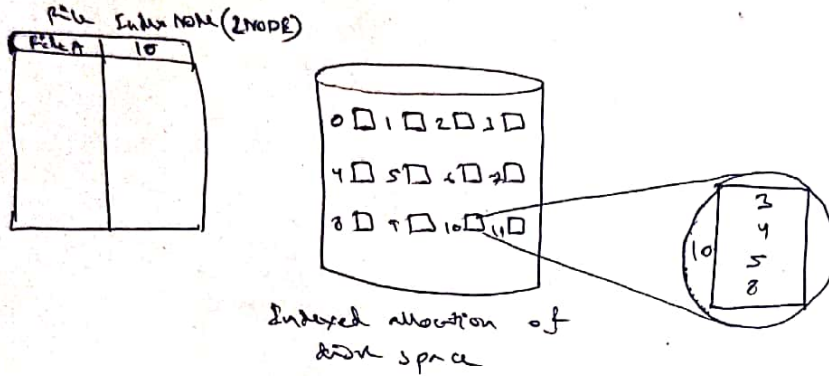 File Index Node (INODE)
File A 10
0 1 2 3
4 5 6 7
8 9 10 11
10
3
4
5
8
Indexed allocation of
disk space